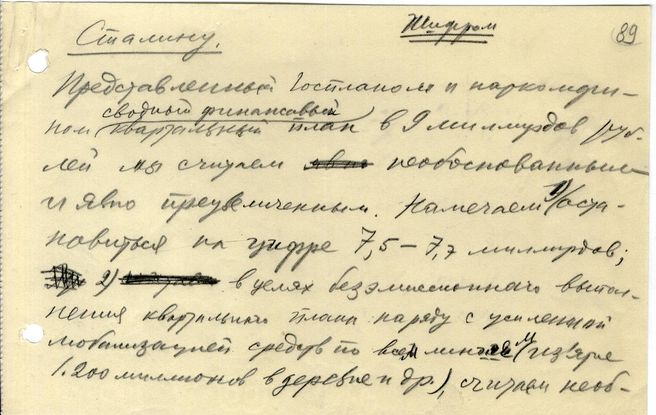 Шифром
89
Сталину.
Представленный Госпланом и наркомфи-
сводный финансовый
ном квартальный план в 9 миллиардов руб-
лей мы считаем явно необоснованным
и явно преувеличенным. Намечаем 1) оста-
новиться на цифре 7,5 – 7,7 миллиардов;
2) в целях безэмиссионного выпол-
нения квартального плана наряду с усиленной
мобилизацией средств по всем линиям (изъятие
1.200 миллионов в деревне и др.), считаем необ-